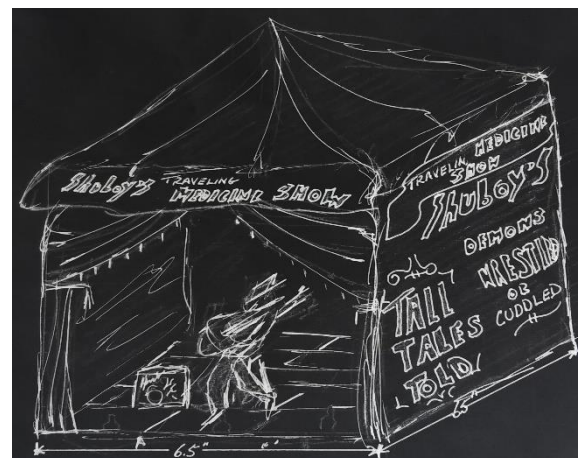 Shuboy's TRAVELING MEDICINE SHOW
TRAVELIN MEDICINE
SHOW
Shuboy's
DEMONS
WRESTLED
OR
CUDDLED
TALL
TALES
TOLD
6.5"